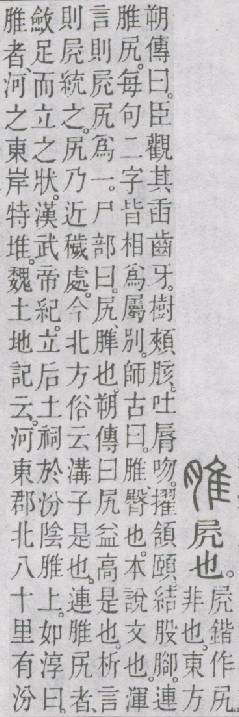 脽𡱂也。
𡱂鍇作尻。
非也。東方
朔傳曰。臣觀其臿齒牙。樹頰胲。吐脣吻。擢領頤。結股腳。連
脽尻。每句二字皆相爲屬別。師古曰。脽、臀也。本說文也。渾
言則𡱂尻爲一。尸部曰。尻、脾也。朔傳曰尻益高是也。析言
則𡱂統之。尻乃近穢處。今北方俗云溝子是也。連脽尻者、
斂足而立之狀。漢武帝紀。立后土祠於汾陰脽上。如淳曰。
脽者、河之東岸特堆。魏土地記云。河東郡北八十里有汾